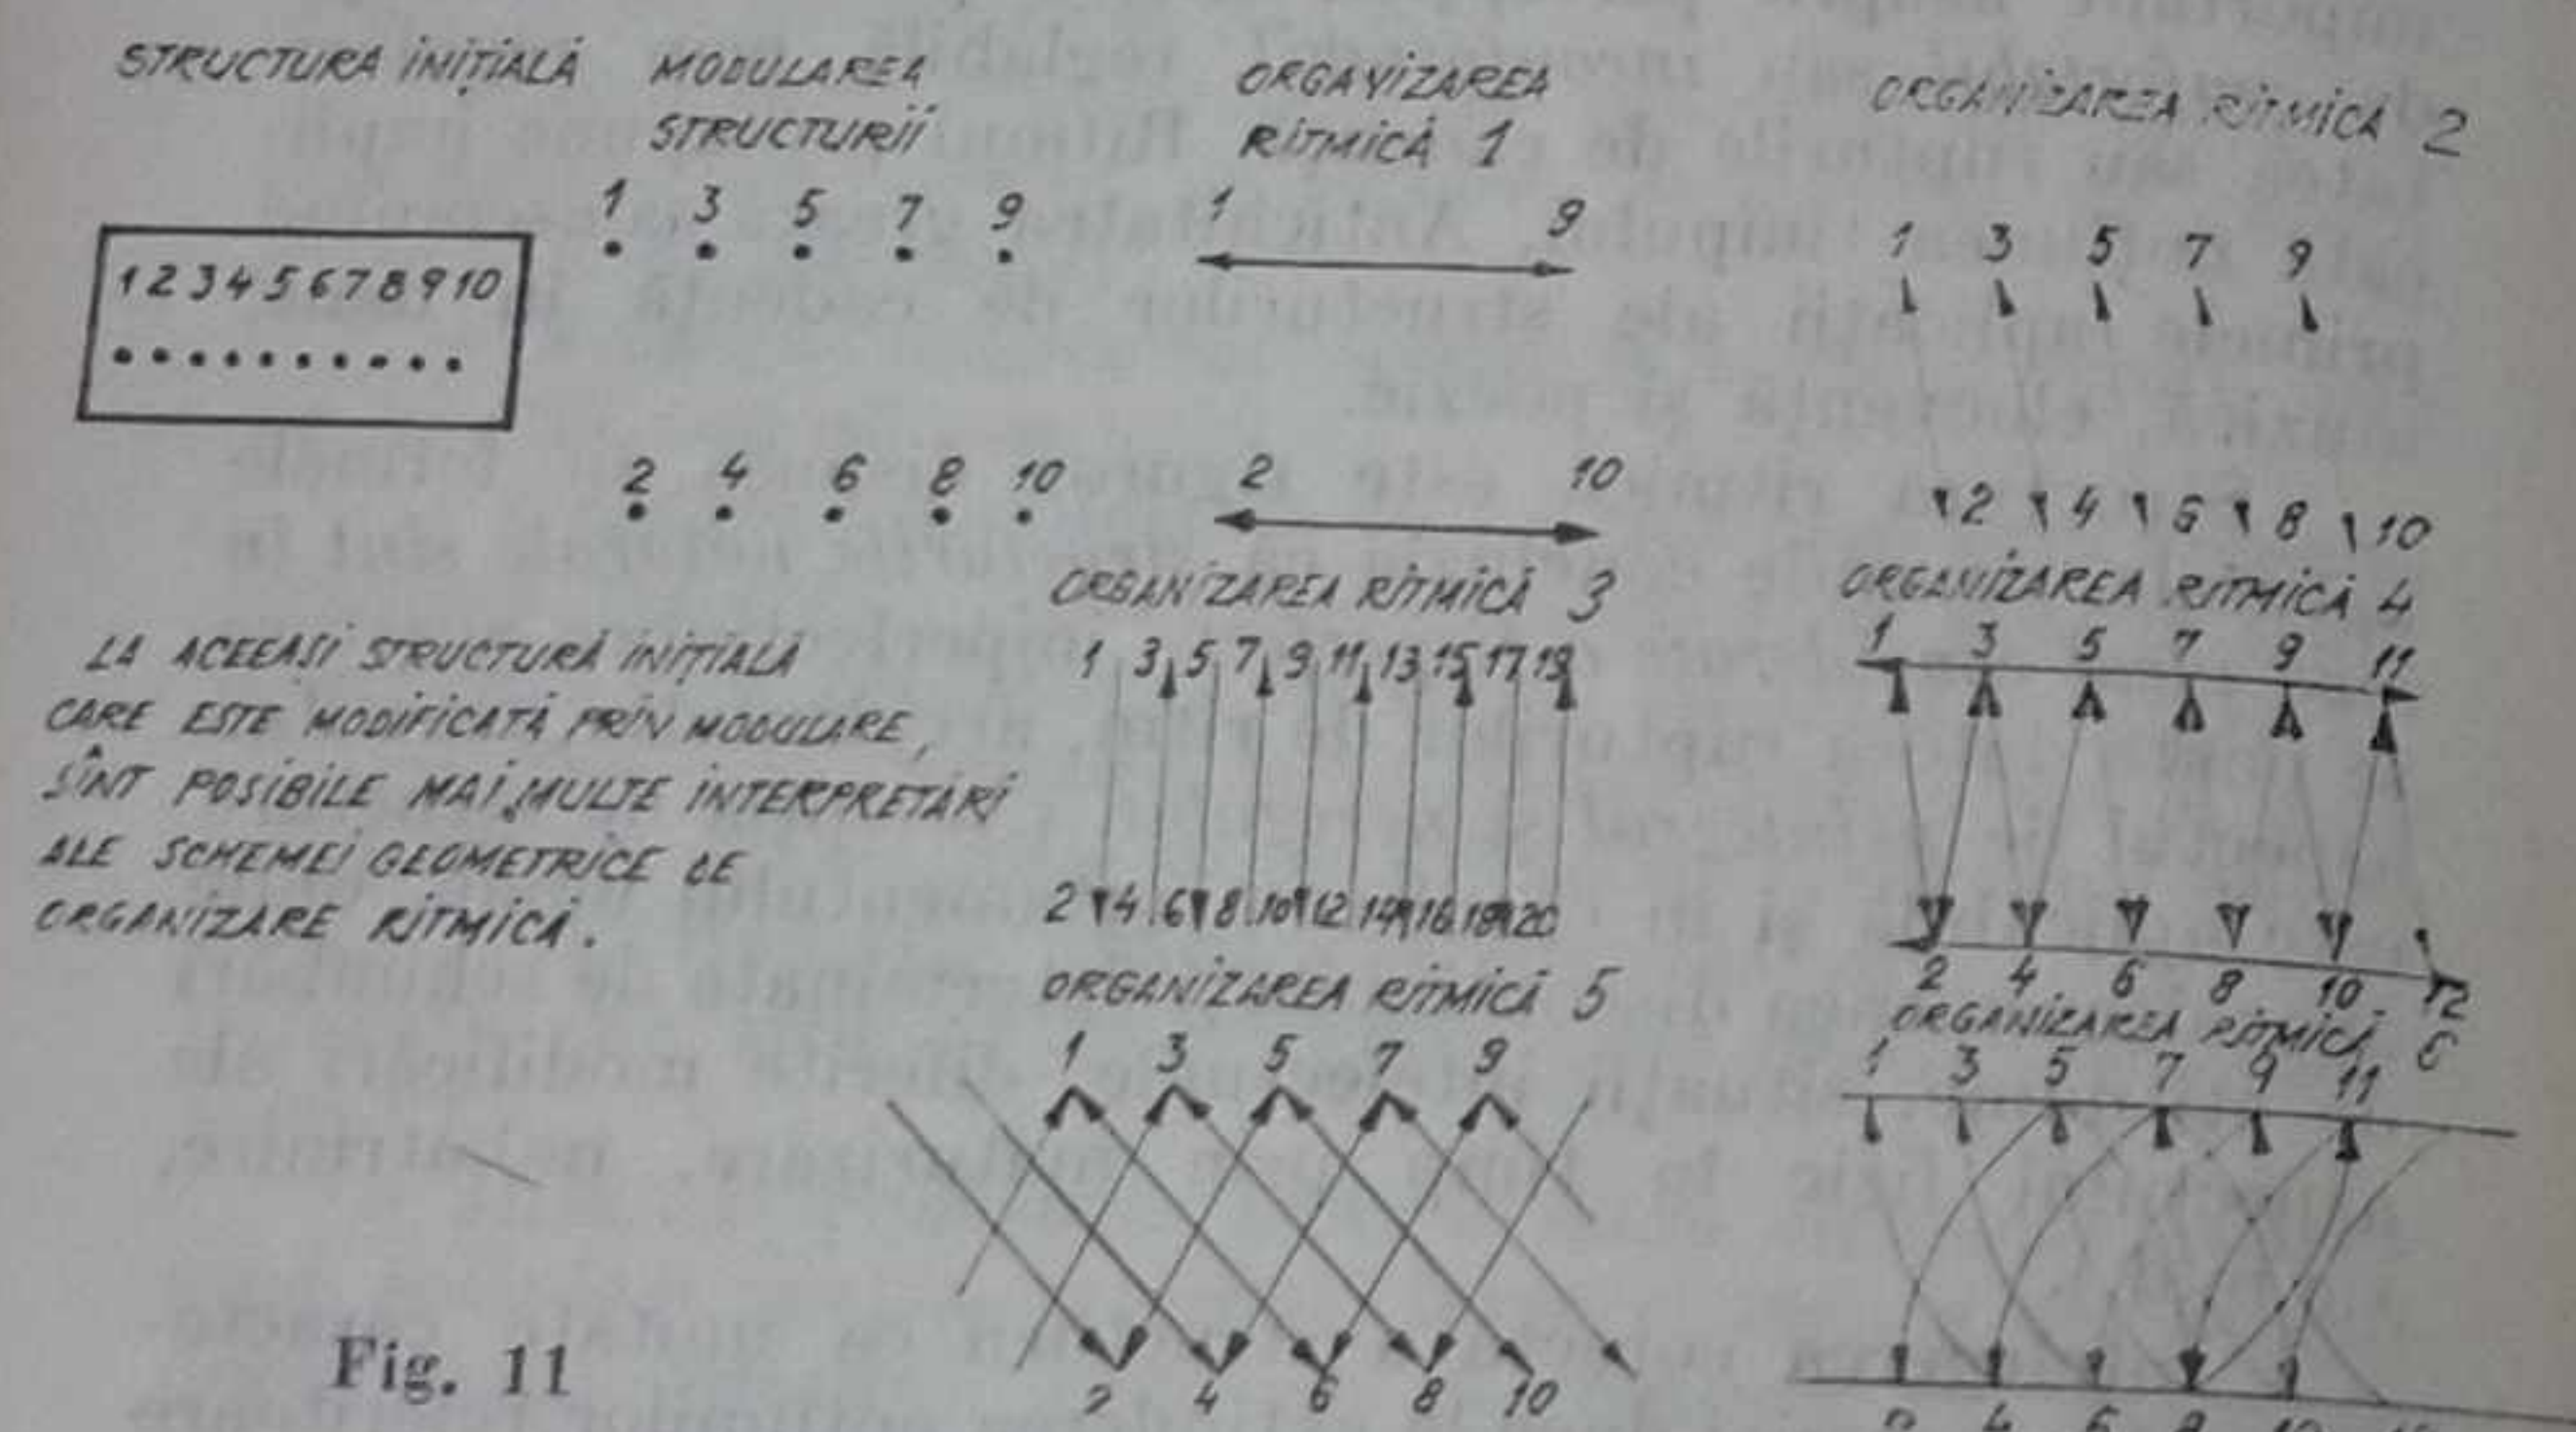 STRUCTURA INIȚIALĂ
MODULAREA
STRUCTURII
ORGANIZAREA
RITMICĂ 1
ORGANIZAREA RITMICĂ 2
1 2 3 4 5 6 7 8 9 10
1 3 5 7 9
2 4 6 8 10
1 9
2 10
1 3 5 7 9
2 4 6 8 10
LA ACEEAȘI STRUCTURĂ INIȚIALĂ
CARE ESTE MODIFICATĂ PRIN MODULARE,
SÎNT POSIBILE MAI MULTE INTERPRETĂRI
ALE SCHEMEI GEOMETRICE DE
ORGANIZARE RITMICĂ.
ORGANIZAREA RITMICĂ 3
1 3 5 7 9 11 13 15 17 19
2 4 6 8 10 12 14 16 18 20
ORGANIZAREA RITMICĂ 4
1 3 5 7 9 11
2 4 6 8 10 12
ORGANIZAREA RITMICĂ 5
1 3 5 7 9
2 4 6 8 10
ORGANIZAREA RITMICĂ 6
1 3 5 7 9 11
2 4 6 8 10
Fig. 11